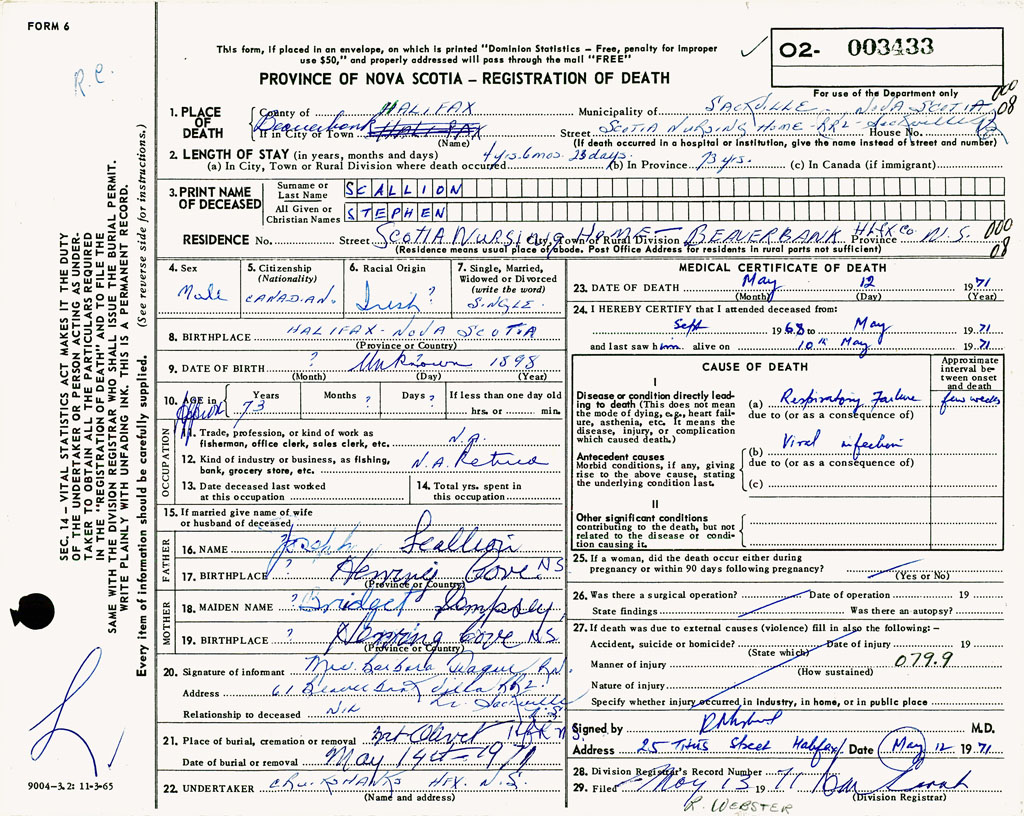 FORM 6
R.C.
This form, if placed in an envelope, on which is printed "Dominion Statistics – Free, penalty for improper
use $50," and properly addressed will pass through the mail "FREE"
PROVINCE OF NOVA SCOTIA – REGISTRATION OF DEATH
O2- 003433
For use of the Department only
000
08
1. PLACE OF DEATH
County of HALIFAX Municipality of SACKVILLE - NOVA SCOTIA
If in City of Town Beaverbank HALIFAX Street SCOTIA NURSING HOME - RR2 - Sackville House No.
(Name) (If death occurred in a hospital or institution, give the name instead of street and number)
2. LENGTH OF STAY (in years, months and days) 4 yrs. 6 mos. 23 days.
(a) In City, Town or Rural Division where death occurred (b) In Province 73 yrs. (c) In Canada (if immigrant)
3. PRINT NAME OF DECEASED
Surname or Last Name SCALLION
All Given or Christian Names STEPHEN
RESIDENCE No. Street SCOTIA NURSING HOME - City, Town or Rural Division BEAVERBANK HLFX Co. Province N.S.
000
08
(Residence means usual place of abode. Post Office Address for residents in rural parts not sufficient)
4. Sex Male
5. Citizenship (Nationality) CANADIAN.
6. Racial Origin Irish ?
7. Single, Married, Widowed or Divorced (write the word) SINGLE.
8. BIRTHPLACE HALIFAX - NOVA SCOTIA
(Province or Country)
9. DATE OF BIRTH ? Unknown 1898
(Month) (Day) (Year)
10. AGE in Approx Years 73 Months ? Days ? If less than one day old
hrs. or min.
OCCUPATION
11. Trade, profession, or kind of work as
fisherman, office clerk, sales clerk, etc. N.A.
12. Kind of industry or business, as fishing,
bank, grocery store, etc. N.A. Retired
13. Date deceased last worked
at this occupation
14. Total yrs. spent in
this occupation
15. If married give name of wife
or husband of deceased
FATHER
16. NAME Joseph Scallion
17. BIRTHPLACE ? Herring Cove NS
(Province or Country)
MOTHER
18. MAIDEN NAME ? Bridget Dempsey
19. BIRTHPLACE ? Herring Cove NS
(Province or Country)
20. Signature of informant Mrs. Barbara R.N.
Address 61 Beaver Bank Villa RR2. Lr. Sackville
Relationship to deceased Nil N.S.
21. Place of burial, cremation or removal Mt Olivet Hfx NS
Date of burial or removal May 14th - 1971
22. UNDERTAKER CRUIKSHANKS HFX. N.S
(Name and address)
MEDICAL CERTIFICATE OF DEATH
23. DATE OF DEATH May 12 1971
(Month) (Day) (Year)
24. I HEREBY CERTIFY that I attended deceased from:
Sept 1968 to May 1971
and last saw him alive on 10th May 1971
CAUSE OF DEATH
Approximate interval between onset and death
I
Disease or condition directly leading to death (This does not mean
the mode of dying, e.g., heart failure, asthenia, etc. It means the
disease, injury, or complication
which caused death.)
(a) Respiratory Failure few weeks
due to (or as a consequence of)
Antecedent causes
Morbid conditions, if any, giving
rise to the above cause, stating
the underlying condition last.
(b) Viral infection
due to (or as a consequence of)
(c)
II
Other significant conditions
contributing to the death, but not
related to the disease or condition causing it.
25. If a woman, did the death occur either during
pregnancy or within 90 days following pregnancy?
(Yes or No)
26. Was there a surgical operation? Date of operation 19
State findings Was there an autopsy?
27. If death was due to external causes (violence) fill in also the following: –
Accident, suicide or homicide? Date of injury 19
(State which)
Manner of injury 079.9
(How sustained)
Nature of injury
Specify whether injury occurred in industry, in home, or in public place
Signed by M.D.
Address 25 Titus Street Halifax Date May 12 1971
28. Division Registrar's Record Number
29. Filed May 13 1971
(Division Registrar)
L. WEBSTER
SEC. 14 – VITAL STATISTICS ACT MAKES IT THE DUTY
OF THE UNDERTAKER OR PERSON ACTING AS UNDERTAKER TO OBTAIN ALL THE PARTICULARS REQUIRED
IN THE "REGISTRATION OF DEATH" AND TO FILE THE
SAME WITH THE DIVISION REGISTRAR WHO SHALL ISSUE THE BURIAL PERMIT.
WRITE PLAINLY WITH UNFADING INK. THIS IS A PERMANENT RECORD.
Every item of information should be carefully supplied. (See reverse side for instructions.)
9004-3.2: 11-3-65